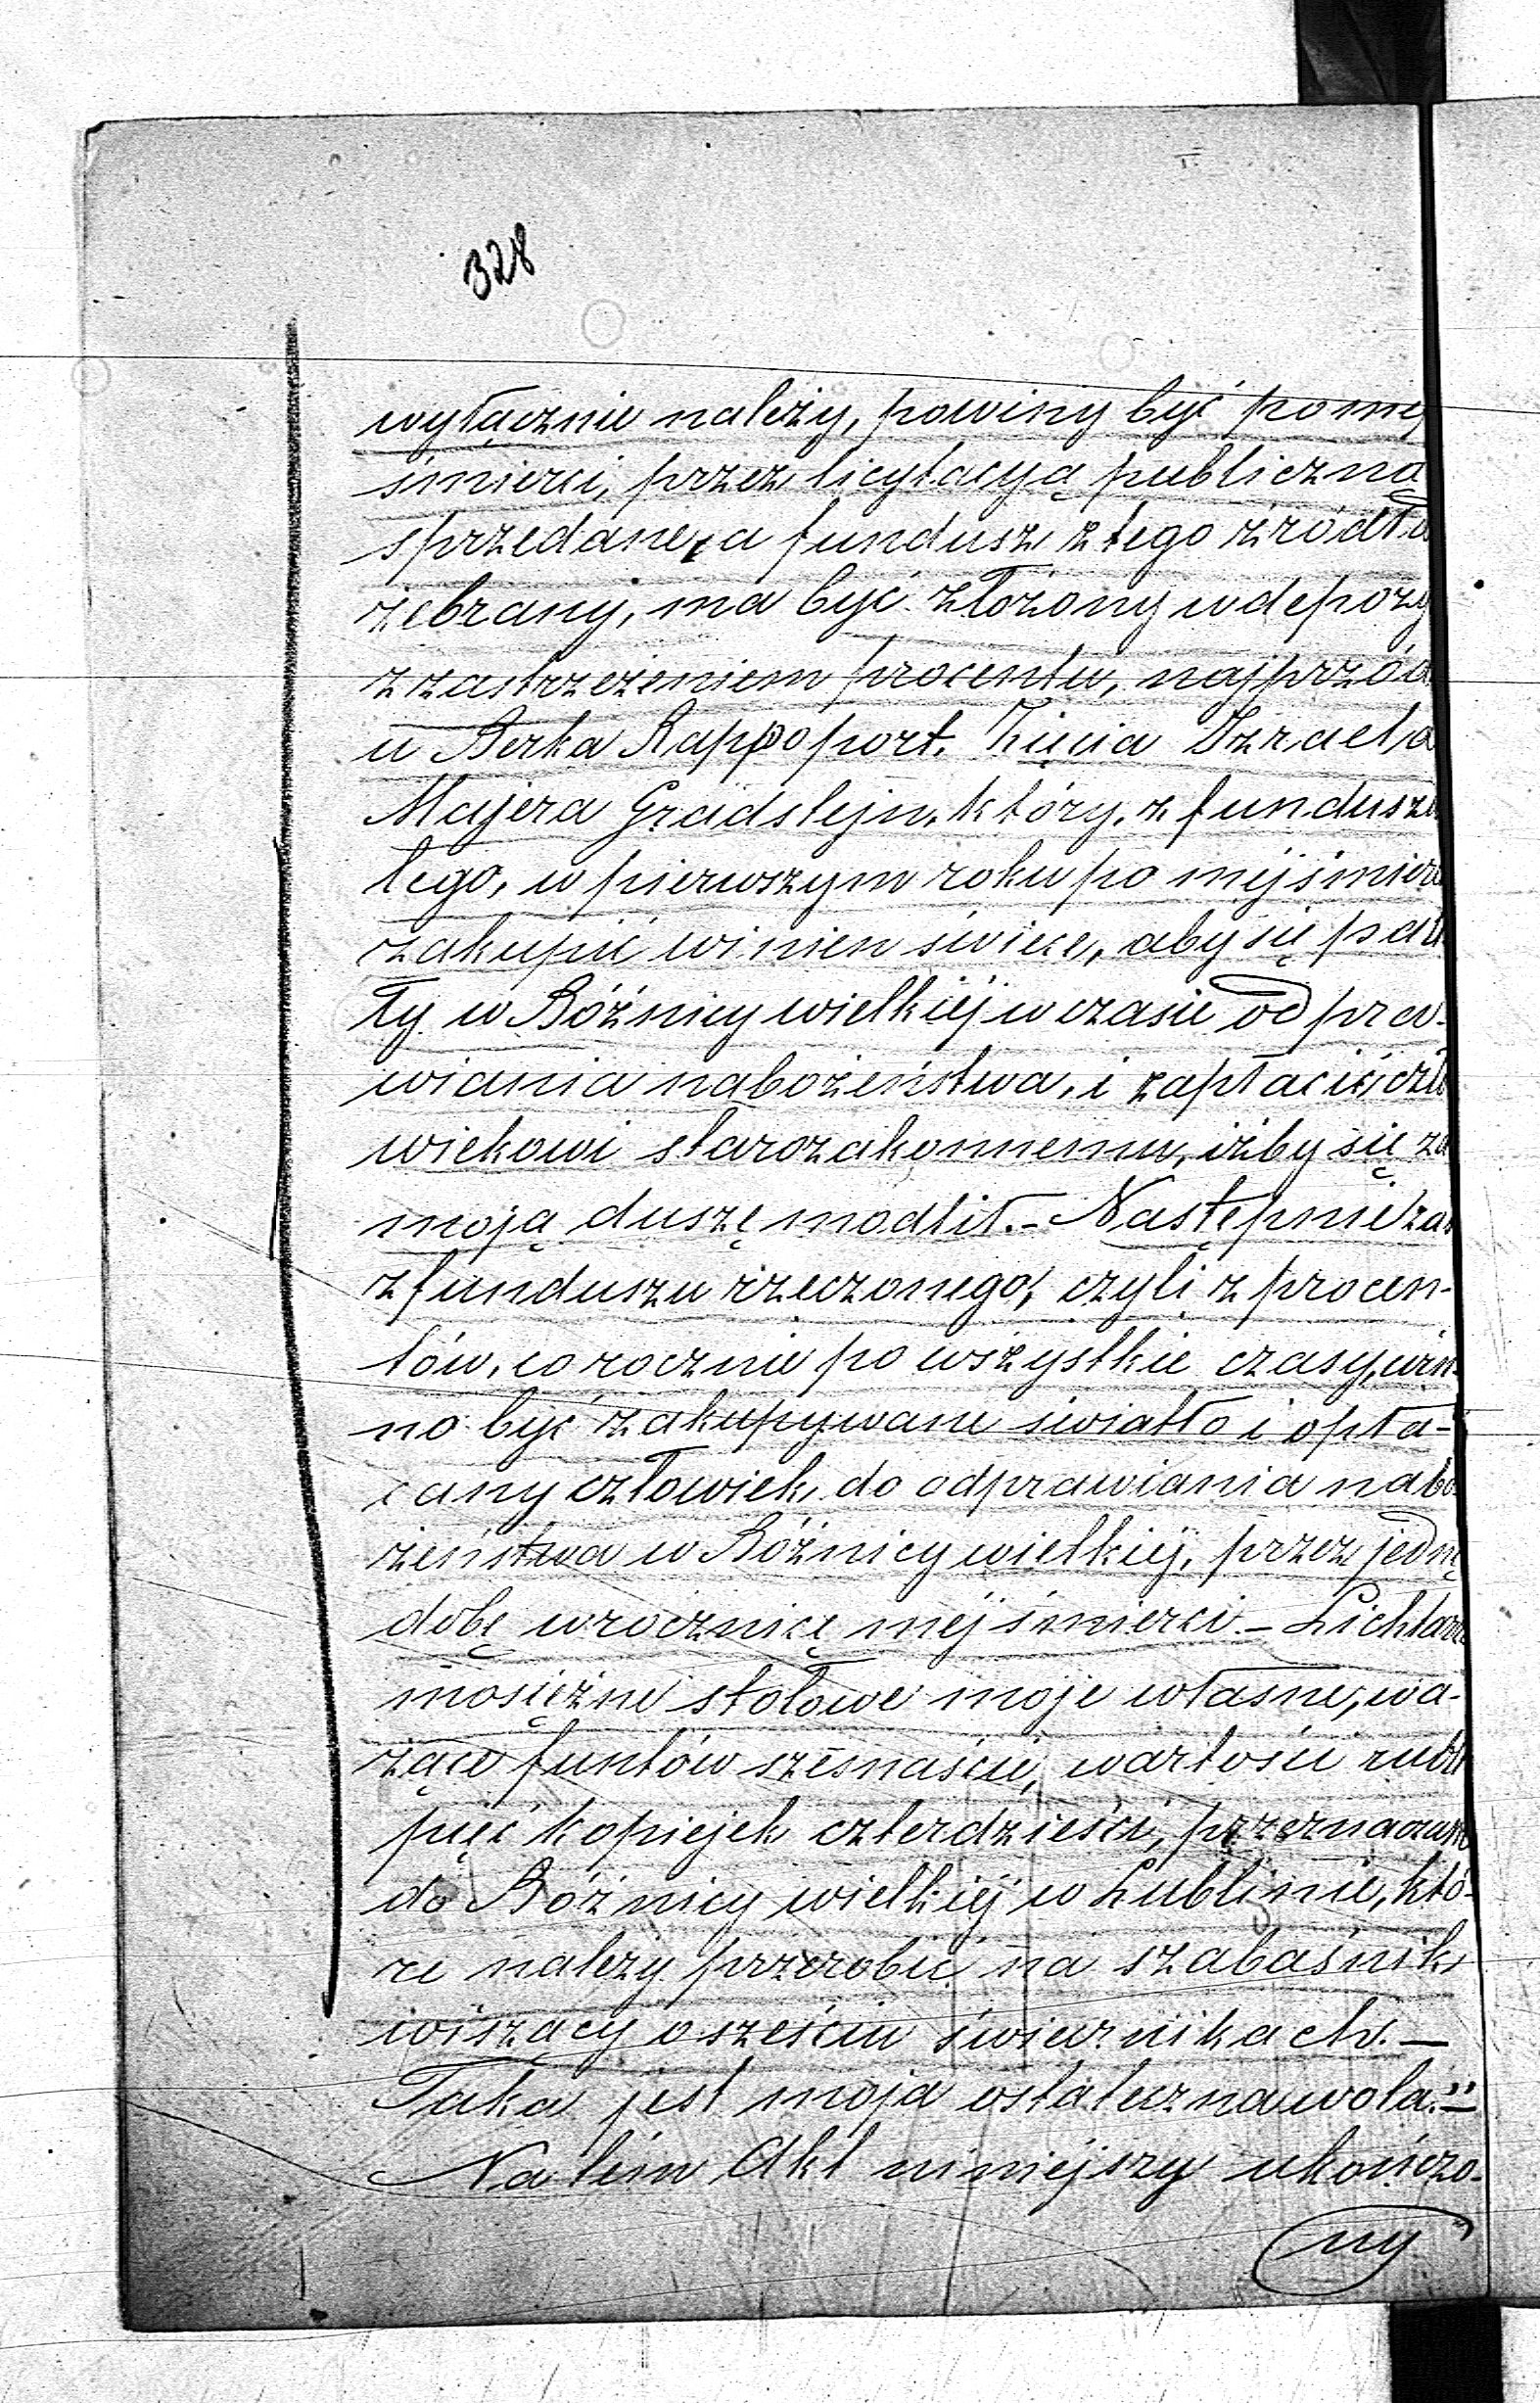 328
wyłącznie należy, powiny być po mej
śmierci, przez licytacyą publiczną
sprzedane, a fundusz z tego źródła
zebrany, ma być złożony w depozy
z zastrzeżeniem procentu, najprzód
u Berka Rappoport. Zięcia Izraela
Majera Gradsztejn, który, z funduszu
tego, w pierwszym roku po mej śmierci
zakupić winien świece, aby się pali
ły w Bóżnicy wielkiej w czasie odpra-
wiania nabożeństwa, i zapłacić czło
wiekowi starozakonnemu, iżby się za
moją duszę modlił. – Następnie zaś
z funduszu rzeczonego, czyli z procen-
tów, corocznie po wszystkie czasy, win-
no być zakupywane światło i opła-
cany człowiek, do odprawiania nabo
żeństwa w Bóżnicy wielkiej, przez jednę
dobę w rocznicę mej śmierci. – Lichtarze
mosiężne stołowe moje własne, wa-
żące funtów szesnaście, wartości rubli
pięć kopiejek czterdzieści, przeznaczam
do Bóżnicy wielkiej w Lublinie, któ-
re należy przerobić na szabaśnik
wiszący o sześciu świecznikach. –
Taka jest moja ostateczna wola." –
Na tém Akt niniejszy ukończo-
ny